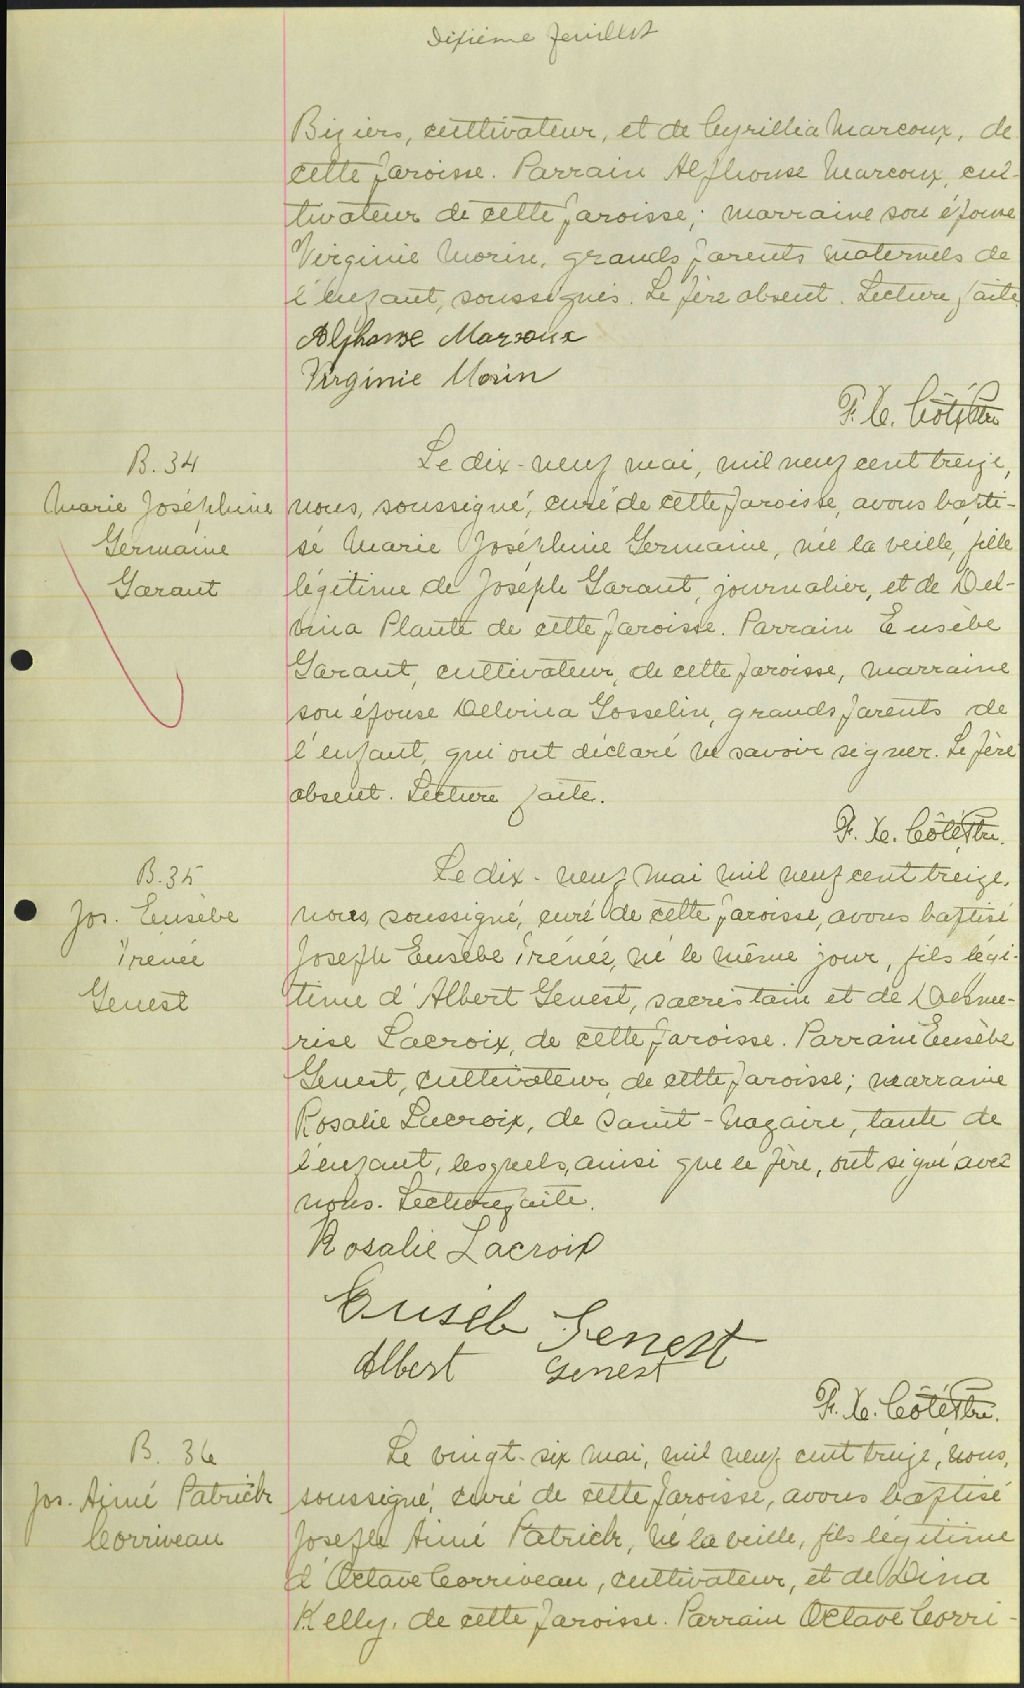 Dixième feuillet
Biziers, cultivateur, et de Cyrillia Marcoux, de
cette paroisse. Parrain Alphonse Marcoux, cul-
tivateur de cette paroisse; marraine son épouse
Virginie Morin, grands parents maternels de
l'enfant, soussignés. Le père absent. Lecture faite
Alphonse Marcoux
Virginie Morin
F. X. Côté, Ptre
B. 34
Marie Joséphine
Germaine
Garant
Le dix-neuf mai, mil neuf cent treize,
nous, soussigné, curé de cette paroisse, avons bapti-
sé Marie Joséphine Germaine, née la veille, fille
légitime de Joseph Garant, journalier, et de Del-
vina Plante de cette paroisse. Parrain Eusèbe
Garant, cultivateur, de cette paroisse, marraine
son épouse Delvina Gosselin, grands parents de
l'enfant, qui ont déclaré ne savoir signer. Le père
absent. Lecture faite.
F. X. Côté, Ptre.
B. 35
Jos. Eusèbe
Irénée
Genest
Le dix-neuf mai mil neuf cent treize,
nous, soussigné, curé de cette paroisse, avons baptisé
Joseph Eusèbe Irénée, né le même jour, fils légi-
time d'Albert Genest, sacristain et de Desme-
rise Lacroix, de cette paroisse. Parrain Eusèbe
Genest, cultivateur, de cette paroisse; marraine
Rosalie Lacroix, de Saint-Nazaire, tante de
l'enfant, lesquels, ainsi que le père, ont signé avec
nous. Lecture faite.
Rosalie Lacroix
Eusèb Genest
Albert Genest
F. X. Côté, Ptre.
B. 36
Jos. Aimé Patrick
Corriveau
Le vingt-six mai, mil neuf cent treize, nous,
soussigné, curé de cette paroisse, avons baptisé
Joseph Aimé Patrick, né la veille, fils légitime
d'Octave Corriveau, cultivateur, et de Dina
Kelly, de cette paroisse. Parrain Octave Corri-